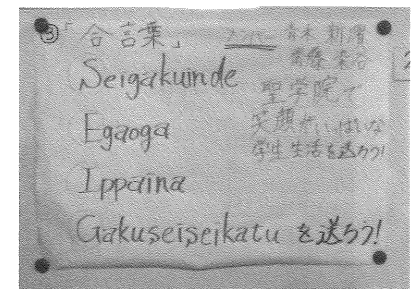 ③「合言葉」
メンバー
Seigakuinde
Egaoga
Ippaina
Gakuseiseikatu を送ろう!
聖学院で
笑顔がいっぱいな
学生生活を送ろう!